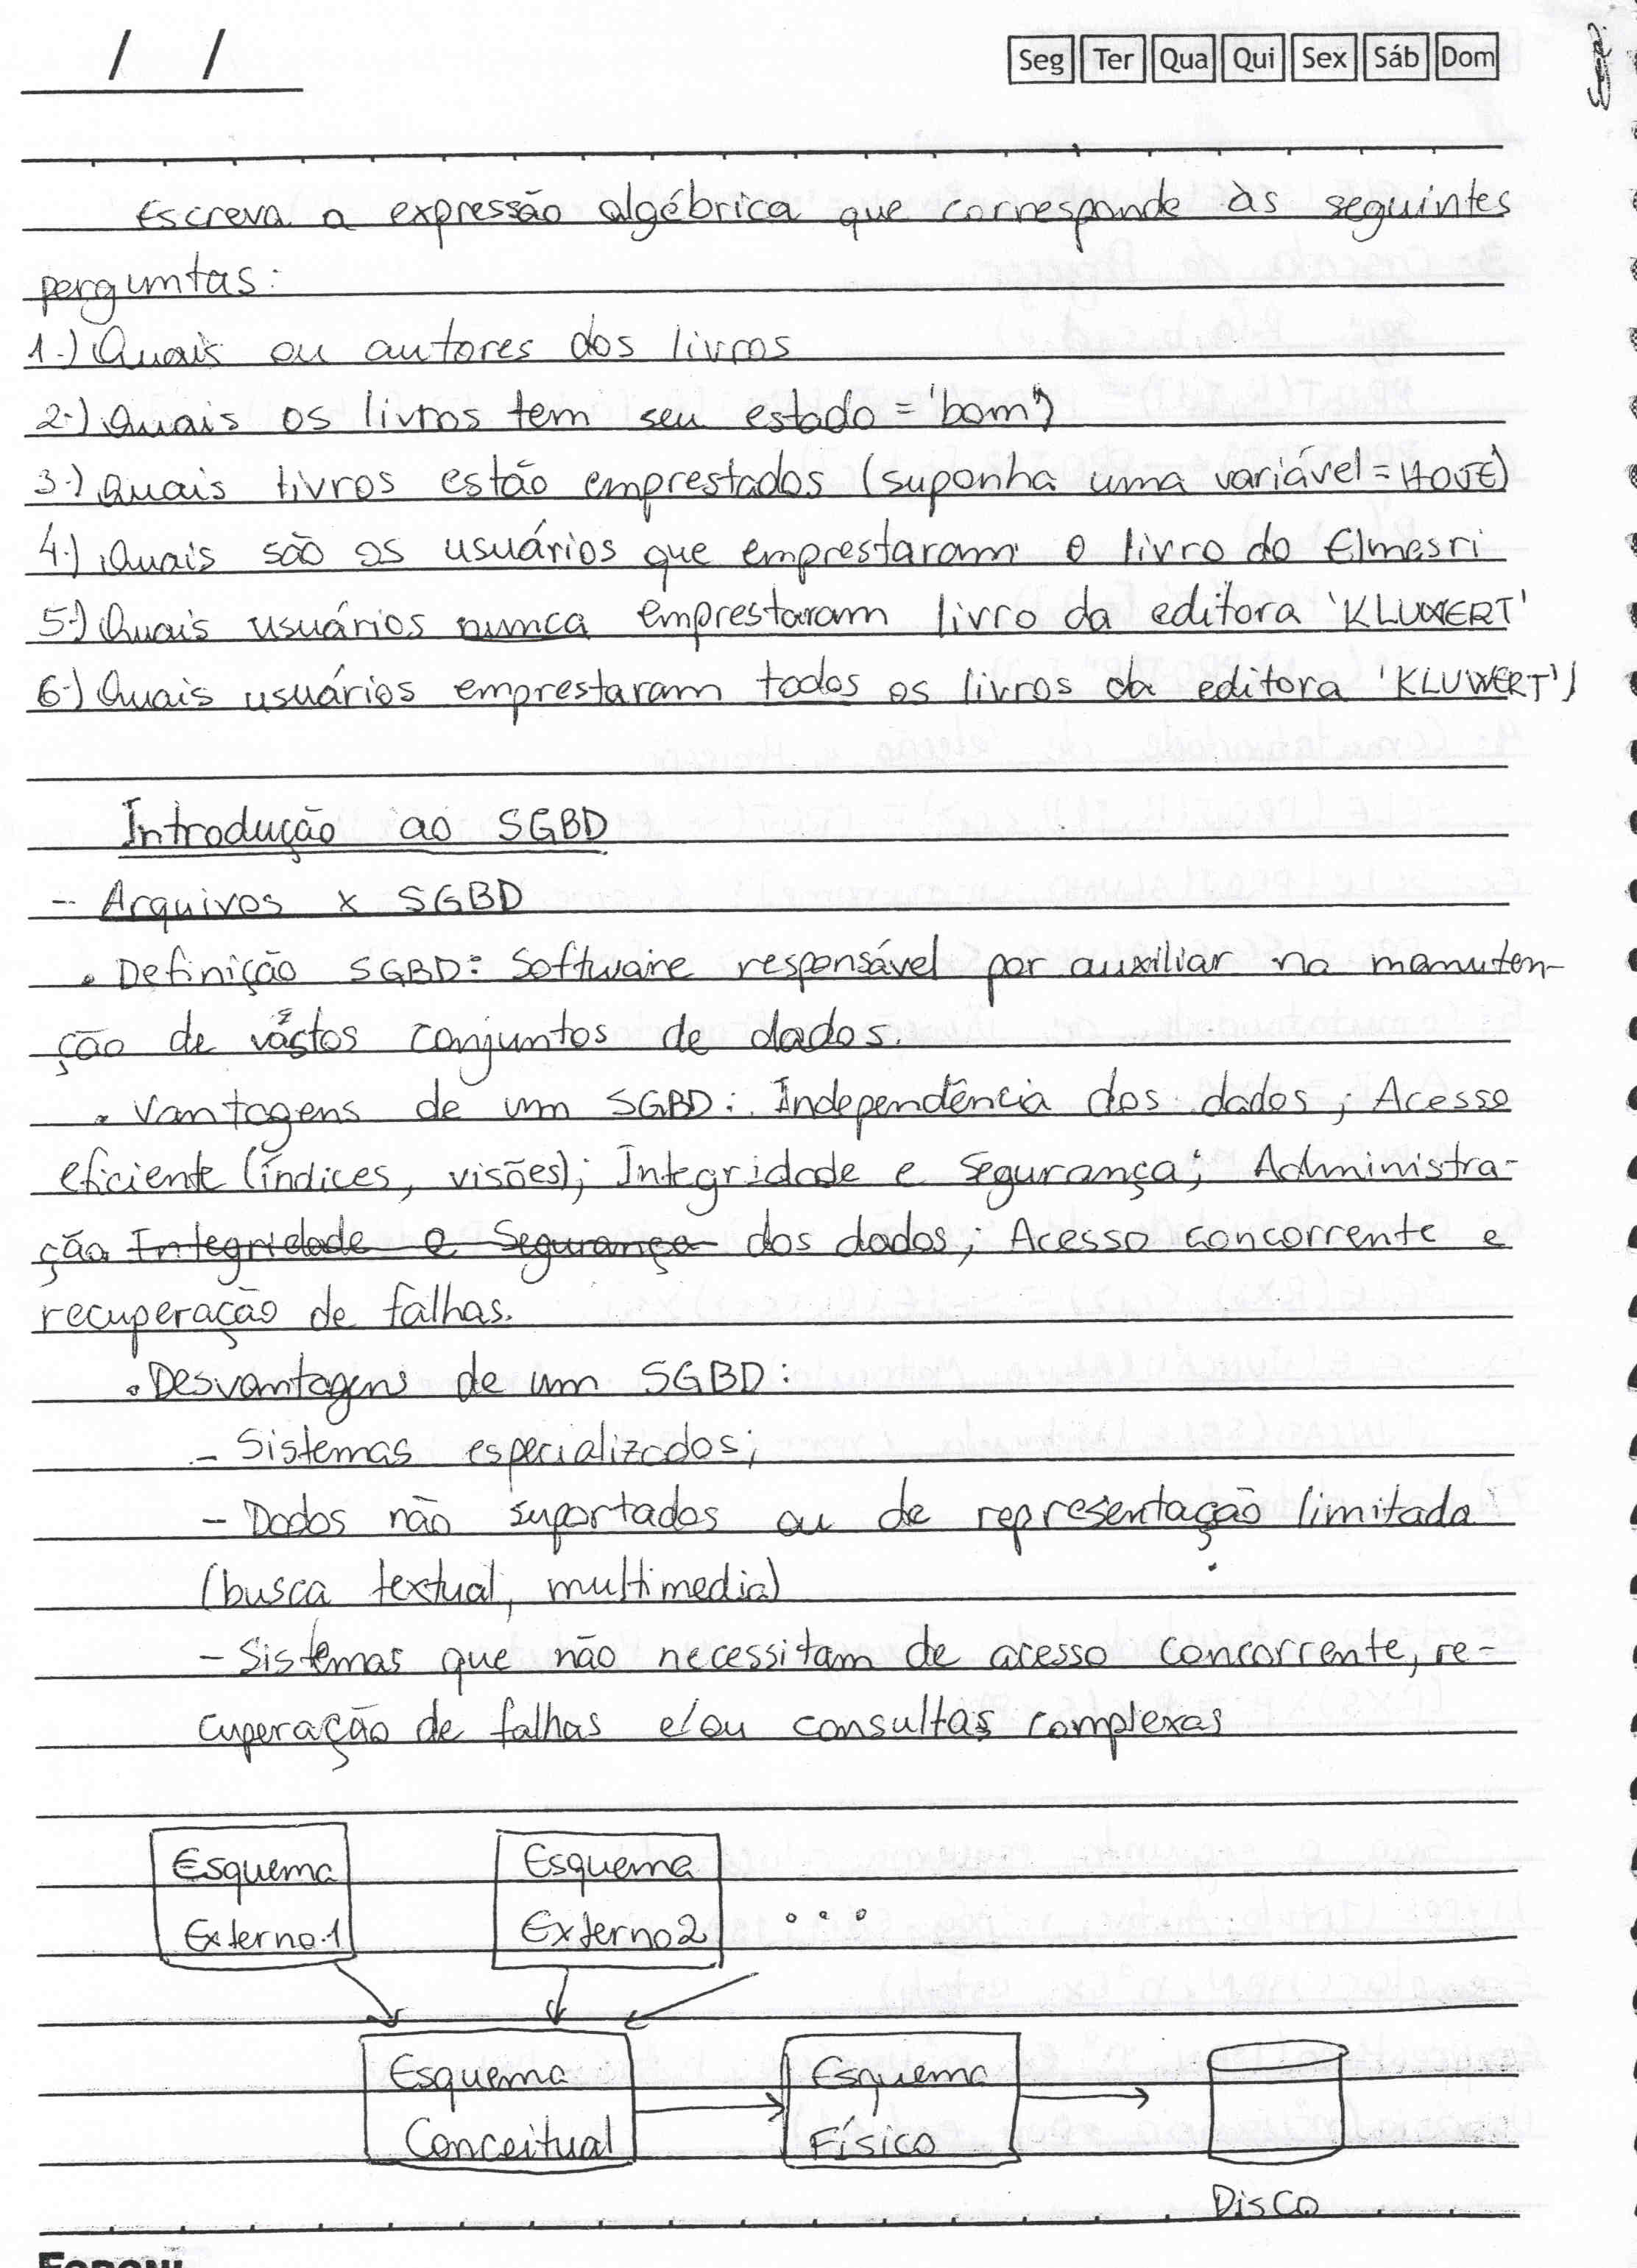 / /
Seg Ter Qua Qui Sex Sáb Dom
Escreva a expressão algébrica que corresponde às seguintes
perguntas:
1.) Quais ou autores dos livros
2.) Quais os livros tem seu estado = 'bom')
3.) Quais livros estão emprestados (suponha uma variável = HOJE)
4.) Quais são os usuários que emprestaram o livro do Elmasri
5.) Quais usuários nunca emprestaram livro da editora 'KLUWERT'
6.) Quais usuários emprestaram todos os livros da editora 'KLUWERT')
Introdução ao SGBD
- Arquivos x SGBD
• Definição SGBD: Software responsável por auxiliar na manuten-
ção de vastos conjuntos de dados.
• Vantagens de um SGBD: Independência dos dados; Acesso
eficiente (índices, visões); Integridade e Segurança; Administra-
ção Integridade e Segurança dos dados; Acesso concorrente e
recuperação de falhas.
• Desvantagens de um SGBD:
- Sistemas especializados;
- Dados não suportados ou de representação limitada
(busca textual, multimedia)
- Sistemas que não necessitam de acesso concorrente, re-
cuperação de falhas e/ou consultas complexas
Esquema
Externo 1
Esquema
Externo 2
...
Esquema
Conceitual
Esquema
Físico
Disco